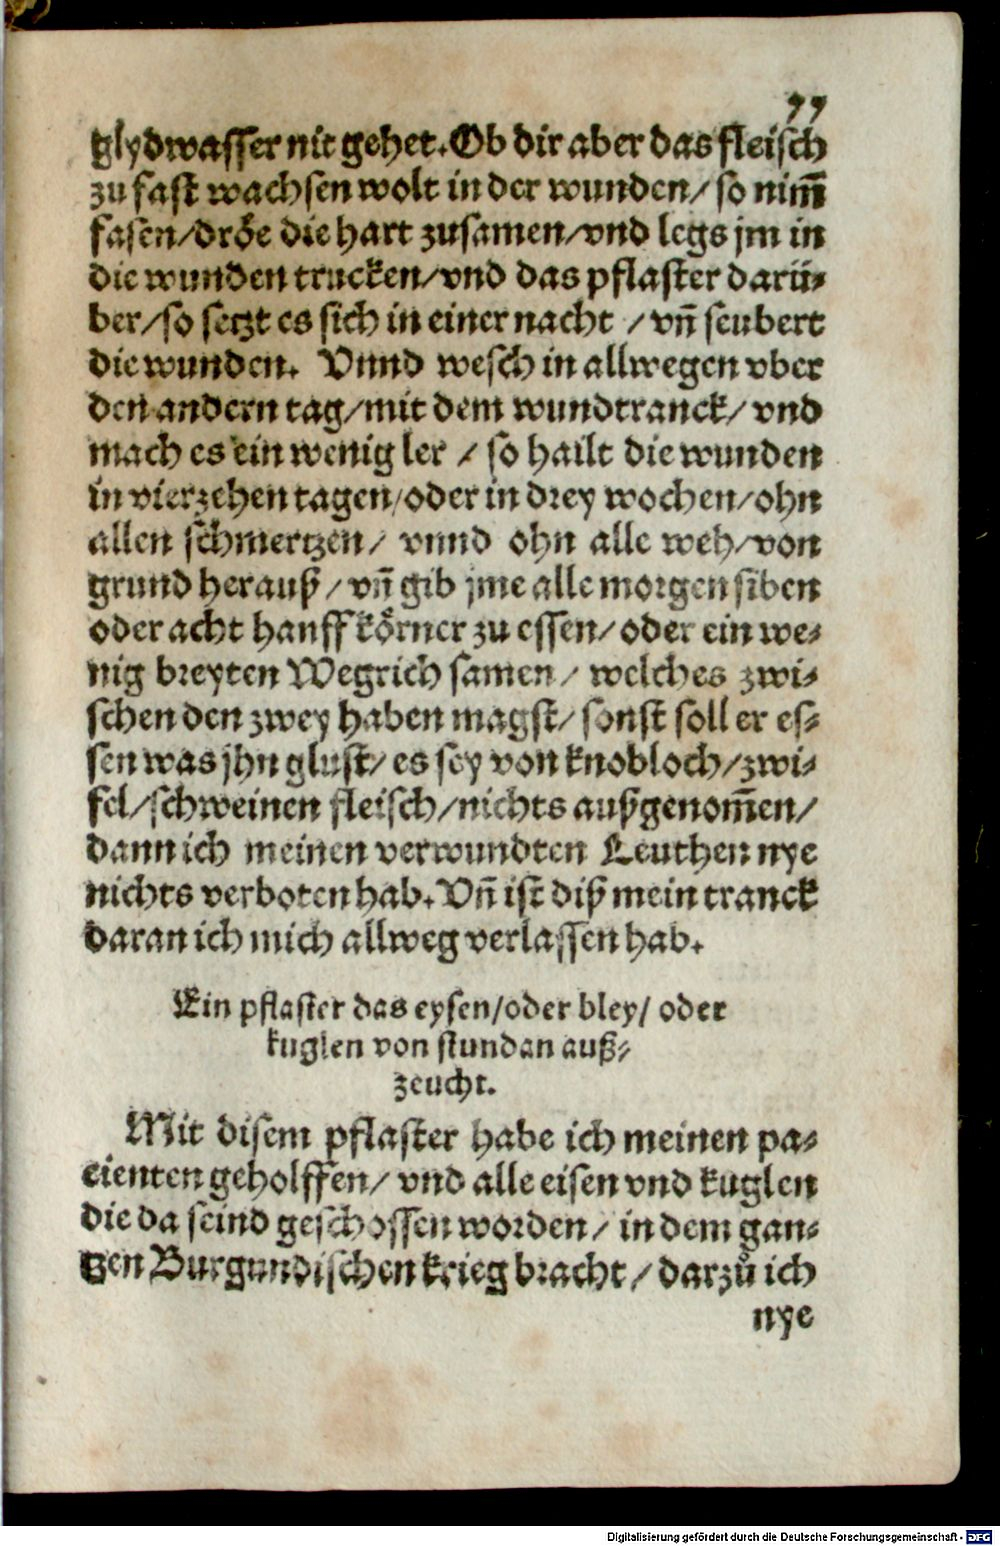 77
glydwasser nit gehet. Ob dir aber das fleisch
zu fast wachsen wolt in der wunden / so nim̃
fasen / dröe die hart zusamen / vnd legs jm in
die wunden trucken / vnd das pflaster darü⸗
ber / so setzt es sich in einer nacht / vñ seubert
die wunden. Vnnd wesch in allwegen vber
den andern tag / mit dem wundtranck / vnd
mach es ein wenig ler / so hailt die wunden
in vierzehen tagen / oder in drey wochen / ohn
allen schmertzen / vnnd ohn alle weh / von
grund herauß / vñ gib jme alle morgen siben
oder acht hanff körner zu essen / oder ein we⸗
nig breyten Wegrich samen / welches zwi⸗
schen den zwey haben magst / sonst soll er es⸗
sen was jhn glust / es sey von knobloch / zwi⸗
fel / schweinen fleisch / nichts außgenom̃en /
dann ich meinen verwundten Leuthen nye
nichts verboten hab. Vñ ist diß mein tranck
daran ich mich allweg verlassen hab.
Ein pflaster das eysen / oder bley / oder
kuglen von stundan auß⸗
zeucht.
Mit disem pflaster habe ich meinen pa⸗
cienten geholffen / vnd alle eisen vnd kuglen
die da seind geschossen worden / in dem gan⸗
tzen Burgundischen krieg bracht / darzů ich
nye
Digitalisierung gefördert durch die Deutsche Forschungsgemeinschaft - DFG